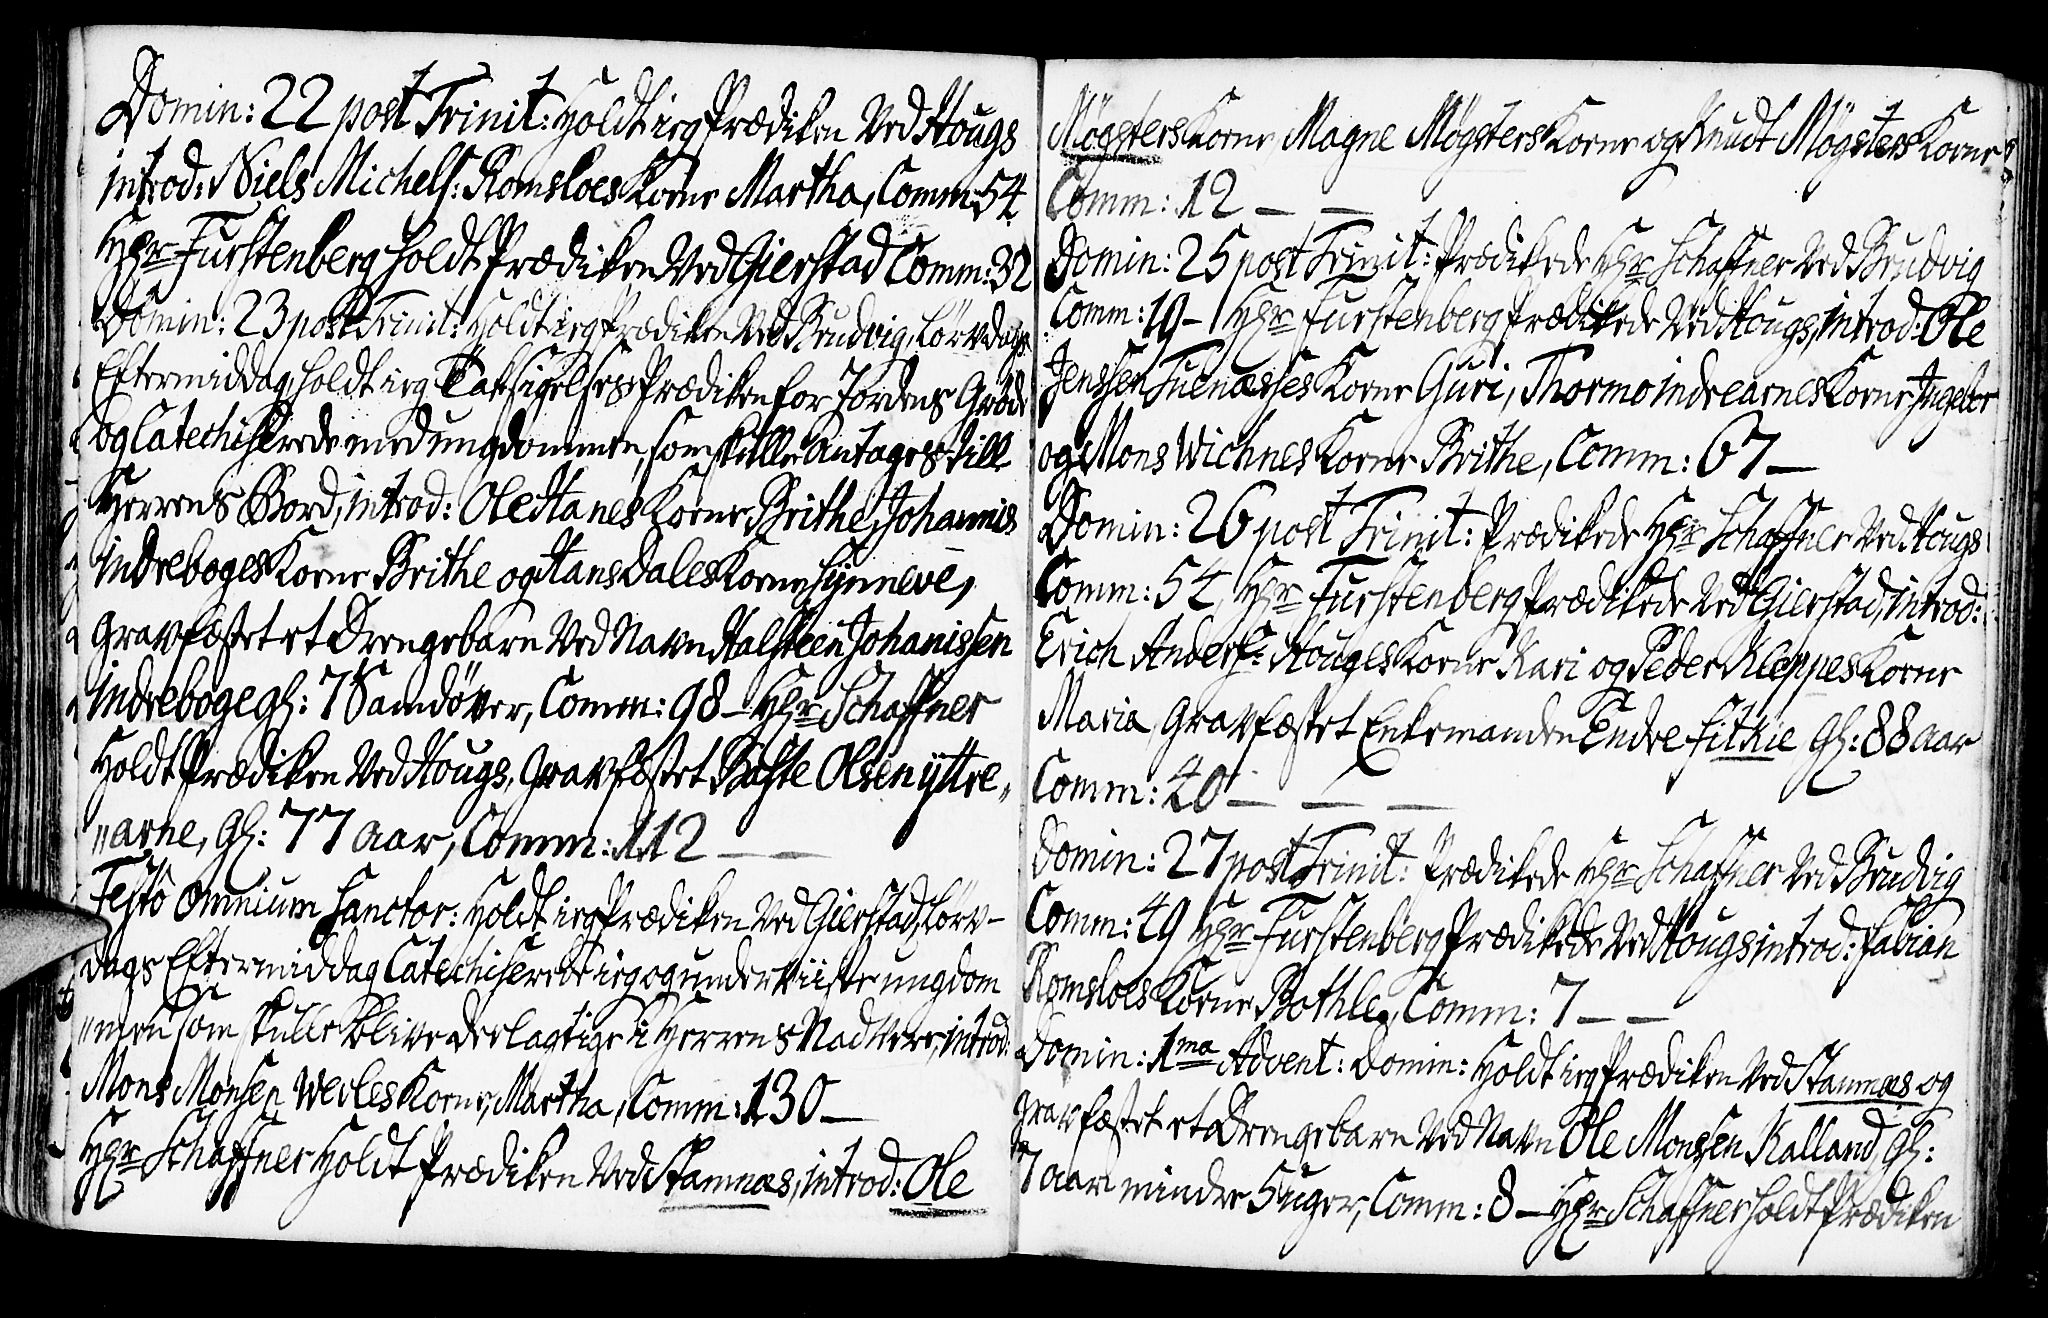 Domin: 22 post Trinit: Holdt ieg Prædiken Ved Hougs
introd: Niels Michels: Romsloes Korne Martha, Comm: 54
Hr Furstenberg Holdt Prædiken Ved Gierstad Comm: 32
Domin: 23 post Trinit: Holdt ieg Prædiken Ved Brudvig, Lövdags
Eftermiddag holdt ieg Taksigelses Prædiken for Jordens Gröde
og Catechiserede med ungdommen, som skulle Antages till
Herrens Bord, introd: Ole Hanes Korne Brithe, Johannis
indreboges Korne Brithe og Hans Dales Korne Synneve,
Gravfæstet et Drengebarn Ved Navn Halsteen Johanissen
indreboge gl: 7 Samdöger, Comm: 98 – Hr Schaffner
Holdt Prædiken Ved Hougs, Gravfæstet Olsen yttre„
„arne, gl: 77 aar, Comm: 112 – –
Festo Omnium Sanctor: Holdt ieg Prædiken Ved Gierstad, Lörv–
dags Eftermiddag Catechiserede ieg og underviiste ungdom
„men som skulle blive deelagtige i Herrens Nadvere, introd:
Mons Monsen Werles Korne, Martha, Comm: 130 –
Hr Schaffner Holdt Prædiken Ved Stamnæs, introd: Ole
Mögsters Korne, Magne Mögsters Korne og Knudt Mögsters Korne
Comm: 12 – –
Domin: 25 post Trinit: Prædikede Hr Schaffner Ved Brudvig
Comm: 19 – Hr Furstenberg Prædikede Ved Hougs, introd: Ole
Jenssen Tuenæsses Korne Guri, Thormo indrearnes Korne Ingebor
og Mons Wichnes Korne Brithe, Comm: 67 –
Domin: 26 post Trinit: Prædikede Hr Schaffner Ved Hougs
Comm: 54, Hr Furstenberg Prædikede Ved Gierstad, introd:
Erich Anders: Houges Korne Kari og Peder Kleppes Korne
Maria, Gravfæstet Enkemanden Endre Fitkie gl: 88 aar
Comm: 40 – – –
Domin: 27 post Trinit: Prædikede Hr Schaffner Ved Brudvig
Comm: 49 Hr Furstenberg Prædikede Ved Hougs introd: Fabian
Romsloes Korne Bothle, Comm: 7 – –
Domin: 1ma Advent: Domin: Holdt ieg Prædiken Ved Stamnæs og
gravfæstet et Drengebarn Ved Navn Ole Monssen Kalland, gl:
7 aar mindre 5 uger, Comm: 8 – Hr Schaffner holdt Prædiken